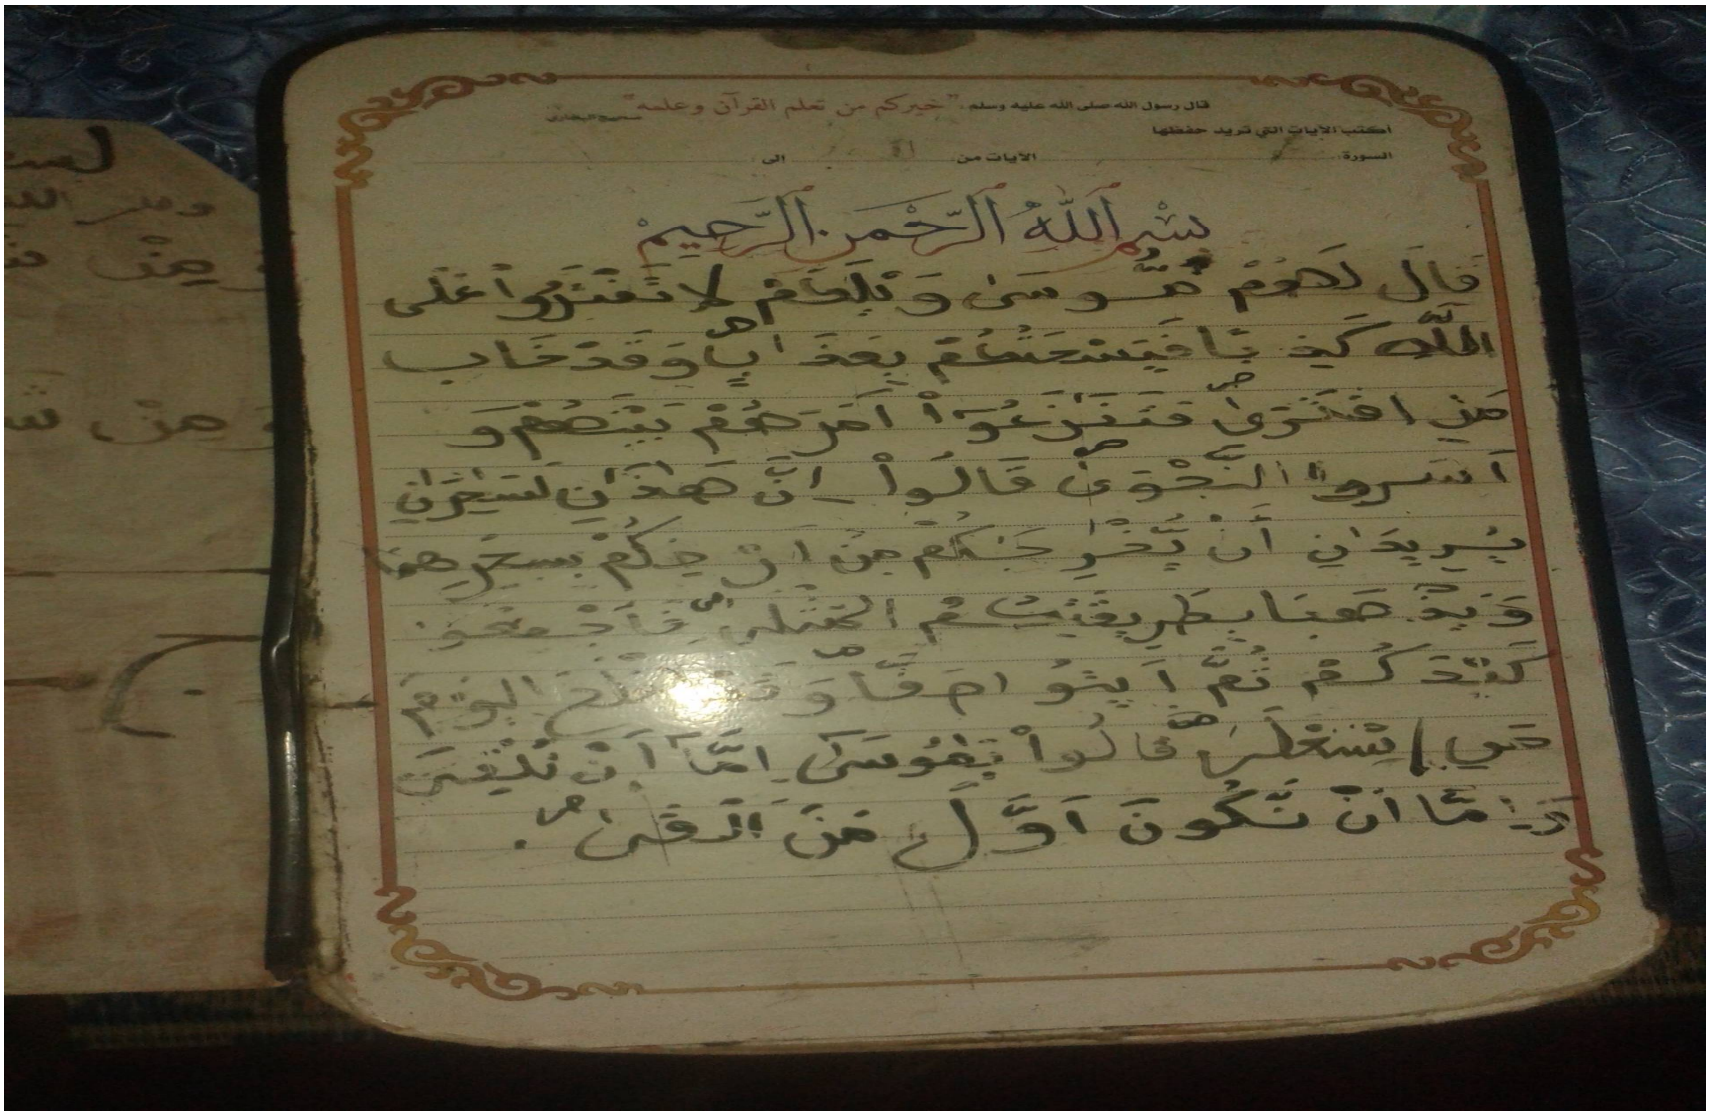 قال رسول الله صلى الله عليه وسلم: "خيركم من تعلم القرآن وعلمه" صحيح البخاري
أكتب الآيات التي تريد حفظها
السورة: الآيات من: إلى:
بِسْمِ اللَّهِ الرَّحْمَنِ الرَّحِيمِ
قَالَ لَهُم مُّوسَىٰ وَيْلَكُمْ لَا تَفْتَرُواْ عَلَى
اللَّهِ كَذِبًا فَيَسْحَتَكُم بِعَذَابٍ وَقَدْ خَابَ
مَنِ افْتَرَىٰ فَتَنَٰزَعُوٓاْ أَمْرَهُمْ بَيْنَهُمْ وَ
أَسَرُّواْ النَّجْوَىٰ قَالُوٓاْ إِنَّ هَٰذَٰنِ لَسَٰحِرَٰنِ
يُرِيدَٰنِ أَنْ يُّخْرِجَٰكُم مِّنْ أَرْضِكُم بِسِحْرِهِمَا
وَيَذْهَبَا بِطَرِيقَتِكُمُ الْمُثْلَىٰ فَأَجْمِعُواْ
كَيْدَكُمْ ثُمَّ ايتُواْ صَفًّا وَقَدْ أَفْلَحَ الْيَوْمَ
مَنِ اسْتَعْلَىٰ قَالُواْ يَٰمُوسَىٰ إِمَّآ أَنْ تُلْقِيَ
وَإِمَّآ أَنْ نَّكُونَ أَوَّلَ مَنْ أَلْقَىٰ